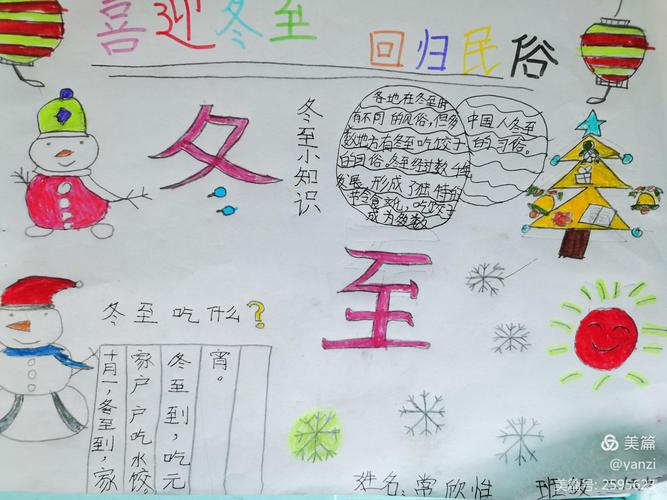 喜迎冬至
回归民俗
冬至
冬至小知识
各地在冬至时
有不同的风俗,但多
数地方有冬至吃饺子
的习俗。冬至经过数千年
发展,形成了独特的
节令食文化,吃饺子
成为多数
中国人冬至
的习俗。
冬至吃什么?
十月一,冬至到,家
家户户吃水饺。
冬至到,吃元
宵。
姓名:常欣
班级
美篇
@yanzi
美篇号: 2595623